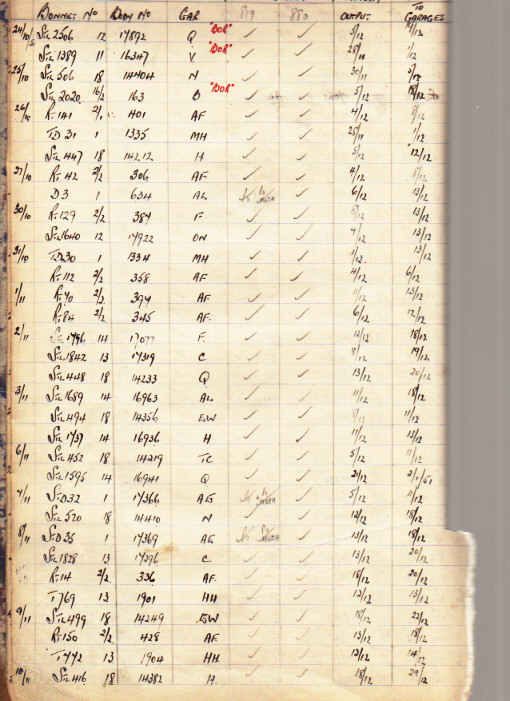 BONNET No BODY No GAR 819 880 OUTPUT. TO GARAGES
24/10 STL 2506 12 17892 Q "BOR" ✓ ✓ 5/12 19/12
STL 1389 11 16347 V "BOR" ✓ ✓ 28/11 1/12
25/10 STL 506 18 14404 N ✓ ✓ 30/11 5/12
STL 2020 16/2 163 D "BOR" ✓ ✓ 5/12 18/12
26/10 RT 141 2/1 401 AF ✓ ✓ 4/12 /12
TD 31 1 1335 MH ✓ ✓ 28/11 1/12
STL 447 18 14212 H ✓ ✓ 5/12 12/12
27/10 RT 42 2/2 306 AF ✓ ✓ 4/12 /12
D3 1 634 AL ✓ 6/12 13/12
30/10 RT 129 2/2 387 F ✓ ✓ /12 13/12
STL 1640 12 17922 ON ✓ ✓ 4/12 13/12
31/10 TD 30 1 1334 MH ✓ ✓ 1/12 13/12
RT 112 2/2 358 AF ✓ ✓ 4/12 6/12
1/11 RT 70 2/2 397 AF ✓ ✓ /12 13/12
RT 84 2/2 345 AF ✓ ✓ 6/12 12/12
2/11 STL 1796 14 17077 F. ✓ ✓ 12/12 18/12
STL 1842 13 17319 C ✓ ✓ 8/12 19/12
STL 448 18 14233 Q ✓ ✓ 13/12 20/12
3/11 STL 1689 14 16963 AL ✓ ✓ 11/12 18/12
STL 494 18 14356 EW ✓ ✓ 8/12 11/12
STL 1737 14 16936 H ✓ ✓ 11/12 13/12
6/11 STL 452 18 14219 TC ✓ ✓ 5/12 11/12
STL 1595 14 16941 Q ✓ ✓ 21/12 2/1/51
7/11 STD 32 1 17366 AE ✓ 5/12 11/12
STL 520 18 14410 N ✓ ✓ 12/12 18/12
8/11 STD 35 1 17369 AE ✓ 13/12 18/12
STL 1828 13 17296 C ✓ ✓ 13/12 20/12
RT 14 2/2 336 AF ✓ ✓ 18/12 20/12
T 769 13 1901 HH ✓ ✓ 12/12 13/12
9/11 STL 499 18 14249 EW ✓ ✓ 18/12 22/12
RT 150 2/2 428 AF ✓ ✓ 13/12 18/12
T 772 13 1904 HH ✓ ✓ 12/12 14/12
10/11 STL 416 18 14382 H. ✓ ✓ 18/12 29/12